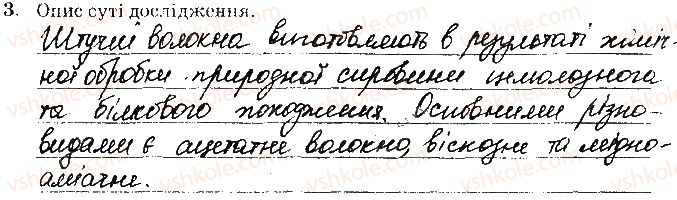 3. Опис суті дослідження.
Штучні волокна виготовляють в результаті хіміч-
ної обробки природної сировини целюлозного
та білкового походження. Основними різно-
видами є ацетатне волокно, віскозне та мідно-
аміачне.